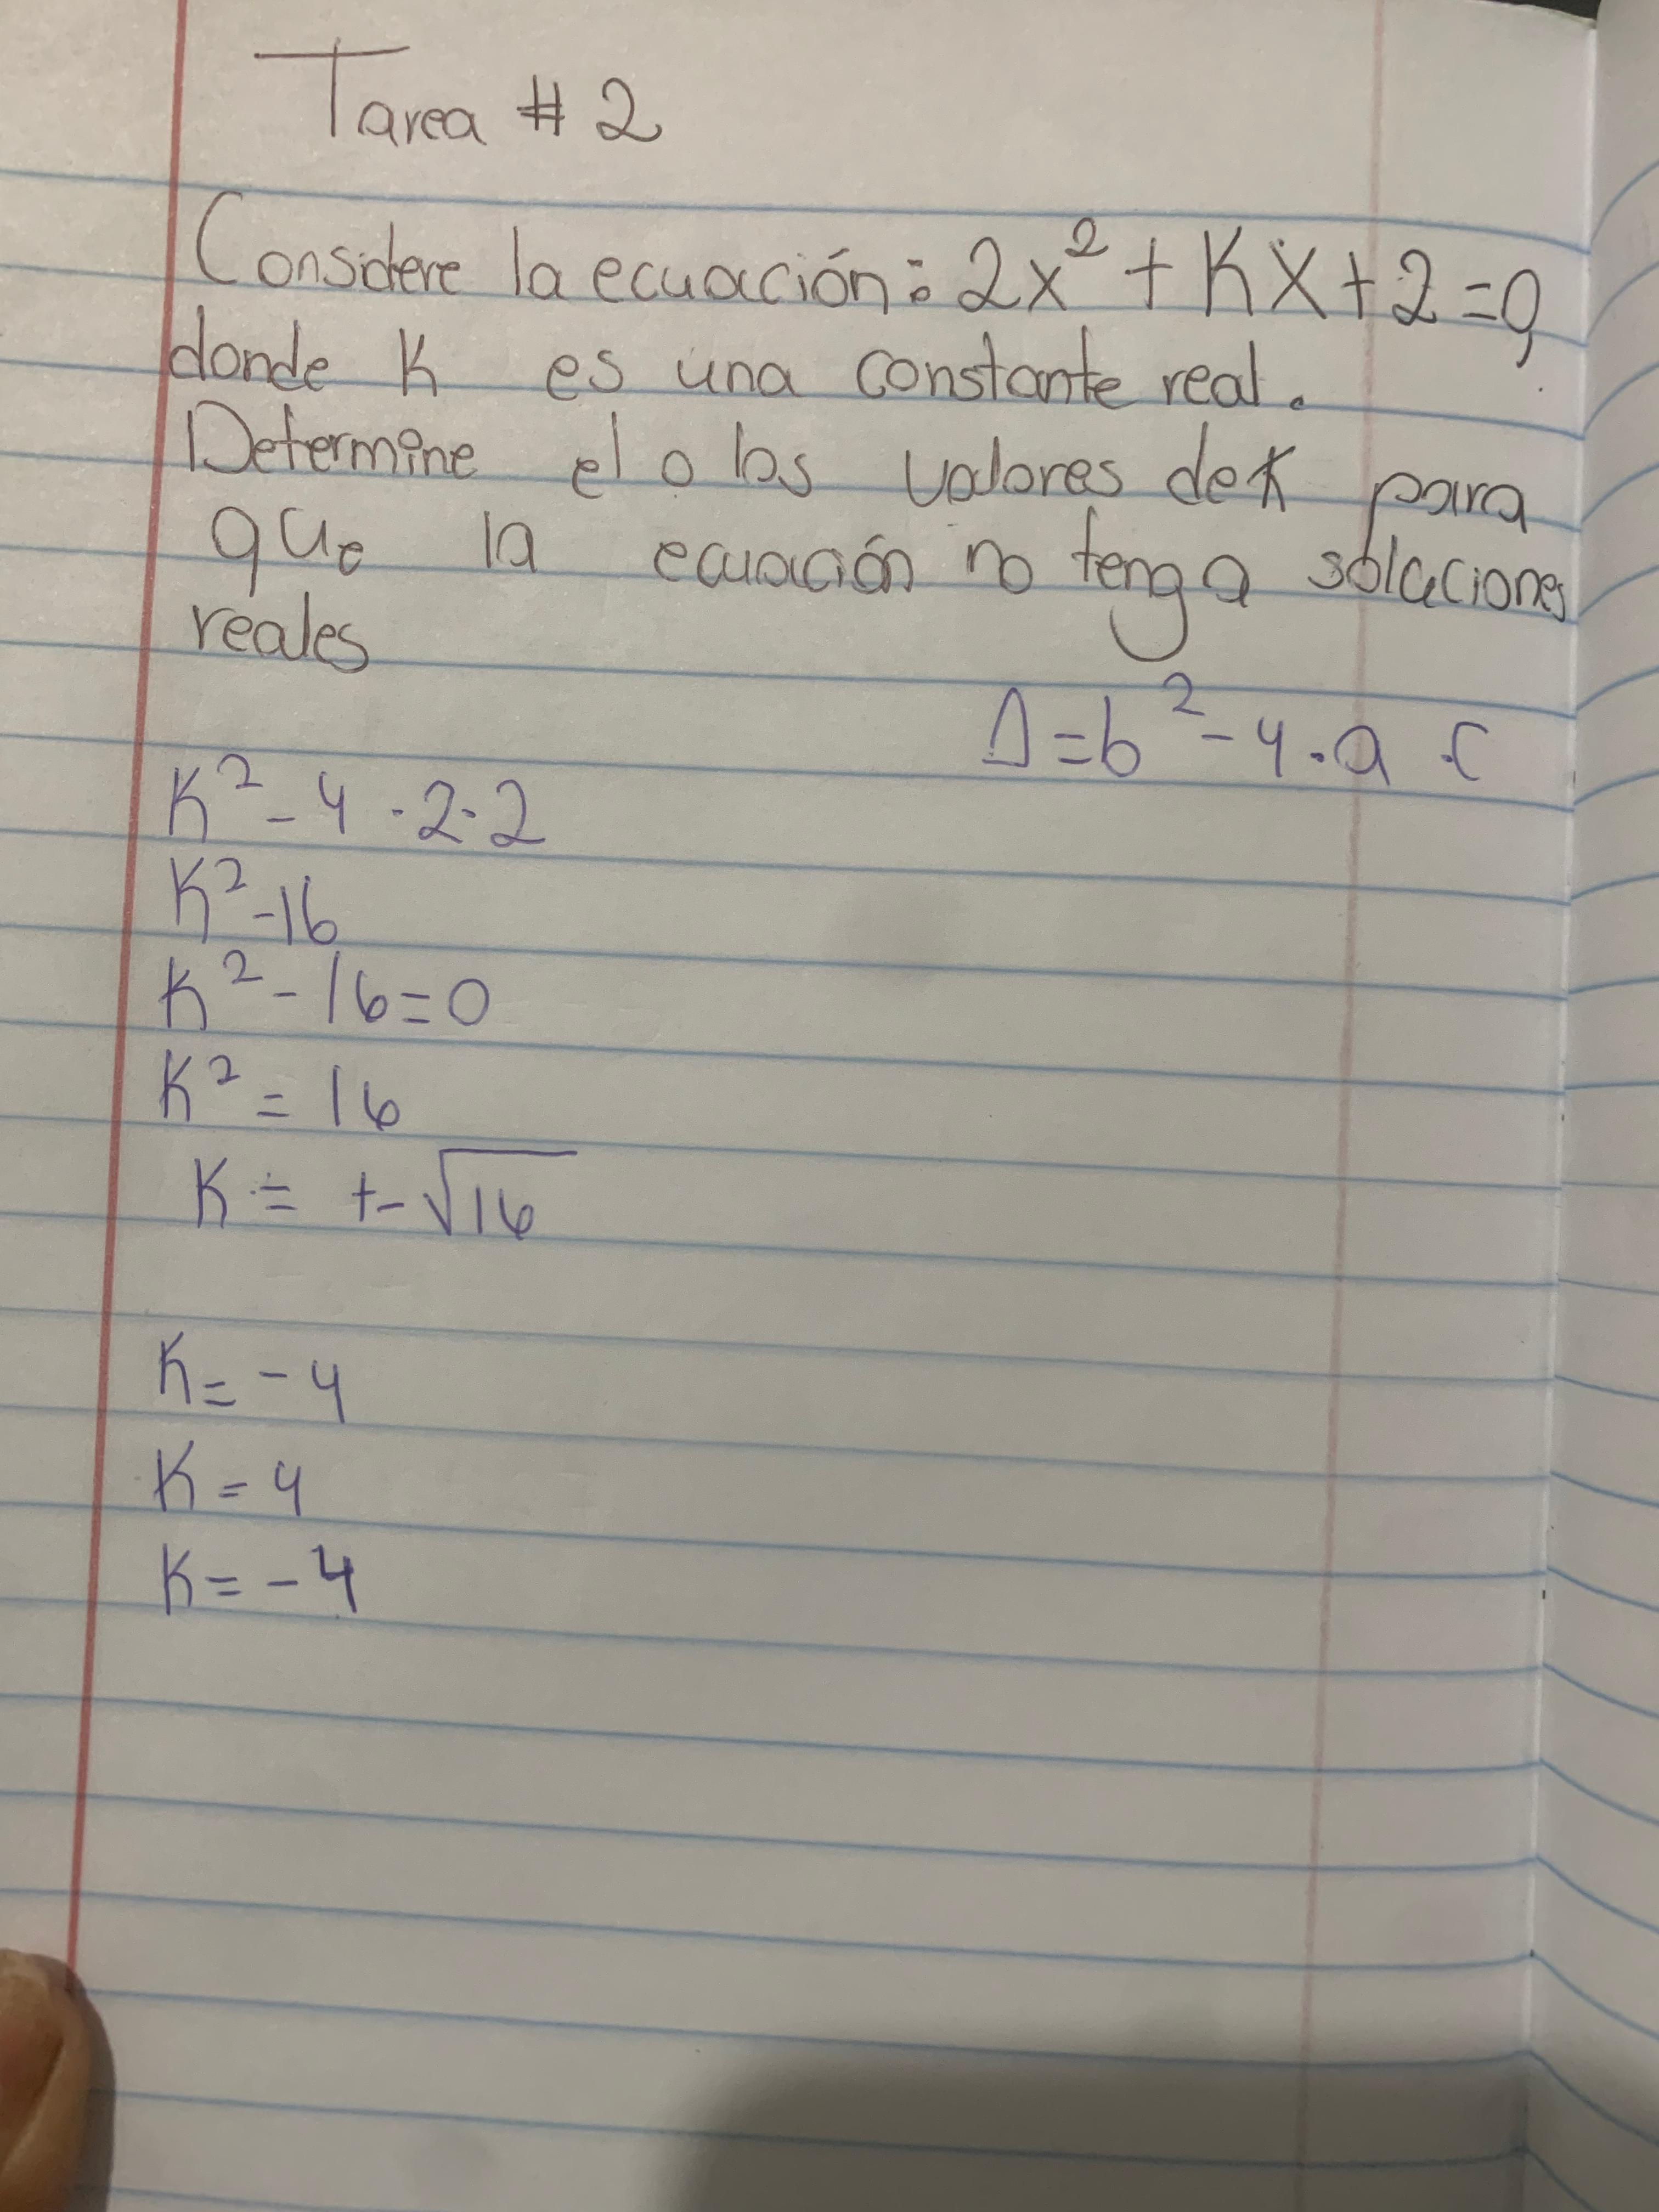 Tarea # 2
Considere la ecuación: 2x² + Kx + 2 = 0,
donde K es una constante real.
Determine el o los valores de K para
que la ecuación no tenga soluciones
reales
Δ = b² - 4 · a · c
K² - 4 · 2 · 2
K² - 16
K² - 16 = 0
K² = 16
K = +- √16
K = - 4
K = 4
K = - 4